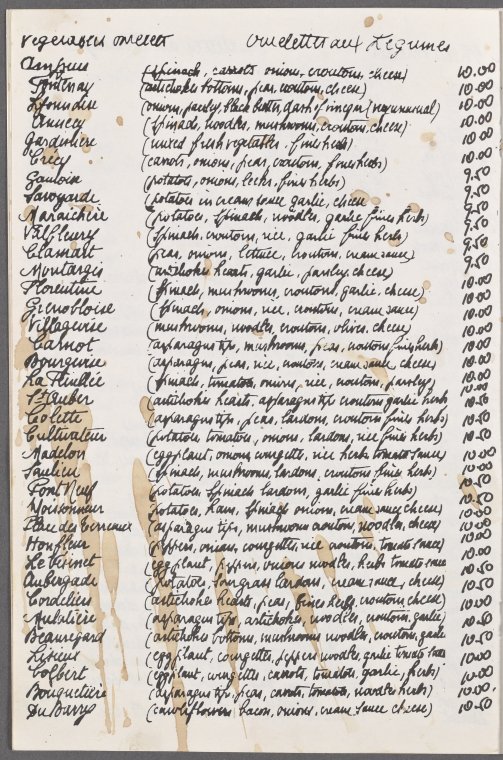 vegetables omelets Omelettes aux Légumes
(spinach, carrots onions, croutons, cheese) 10.00
Fontenay (artichokes bottoms, peas, croutons, cheese) 10.00
(onions, parsley, black butter, dash of vinegar) 10.00
Annecy (spinach, noodles, mushrooms, croutons, cheese) 10.00
Jardinière (mixed fresh vegetables, fines herbs) 10.00
Crécy (carrots, onions, peas, croutons, fines herbs) 10.00
Gauloise (potatoes, onions, leeks, fines herbs) 9.50
Savoyarde (potatoes in cream sauce garlic, cheese 9.50
Maraichère (potatoes, spinach, noodles, garlic fines herbs) 9.50
Valfleury (spinach, croutons, rice, garlic fines herbs) 9.50
Clamart (peas, onions, lettuce, croutons, cream sauce) 9.50
Montargis (artichokes hearts, garlic, parsley, cheese) 9.50
Florentine (spinach, mushrooms, croutons, garlic, cheese) 10.00
Grenobloise (spinach, onions, rice, croutons, cream sauce) 10.00
Villageoise (mushrooms, noodles, croutons, olives, cheese) 10.00
Carnot (asparagus tips, mushrooms, peas, croutons, fines herbs) 10.00
Bourgeoise (asparagus, peas, rice, croutons, cream sauce, cheese) 10.00
(spinach, tomatoes, onions, rice, croutons, parsley) 10.00
(artichokes hearts, asparagus tips croutons garlic herbs 10.50
Colette (asparagus tips, peas, lardons, croutons fines herbs) 10.50
Cultivateur (potatoes, tomatoes, onions, lardons, rice fines herbs) 10.50
Madelon (eggplant, onions courgettes, rice herbs tomato sauce) 10.00
Saulieu (spinach, mushrooms, lardons, croutons fines herbs) 10.50
Pont Neuf (potatoes spinach lardons, garlic fines herbs) 10.50
Moissonneur (potatoes, ham, spinach onions, cream sauce cheese) 10.00
Place de Terreaux (asparagus tips, mushrooms croutons, noodles, cheese) 10.00
Honfleur (peppers, onions, courgettes, rice croutons, tomato sauce) 10.00
Le Vésinet (eggplant, peppers, onions noodles, herbs tomato sauce 10.50
Aubergade (potatoes, sourgrass lardons, cream sauce, cheese) 10.50
Cordeliers (artichokes hearts, peas, fines herbs, croutons, cheese) 10.50
(asparagus tips, artichokes, noodles, croutons, garlic) 10.50
Beauregard (artichokes bottoms, mushrooms noodles, croutons, garlic 10.50
Lisieux (eggplant, courgettes, peppers noodles, garlic tomato sauce 10.00
Volbert (eggplant, courgettes, carrots, tomatoes, garlic, herbs) 10.00
Bouquetière (asparagus tips, peas, carrots, tomatoes, noodles herbs) 10.00
Du Barry (cauliflowers bacon, onions, cream sauce cheese) 10.50